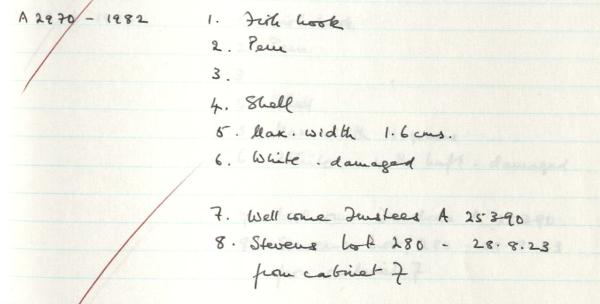 A 2970 - 1982 1. Fish hook
2. Peru
3.
4. Shell
5. Max. width 1.6 cms.
6. White. damaged
7. Wellcome Trustees A 25390
8. Stevens Lot 280 - 28.8.23
from cabinet 7